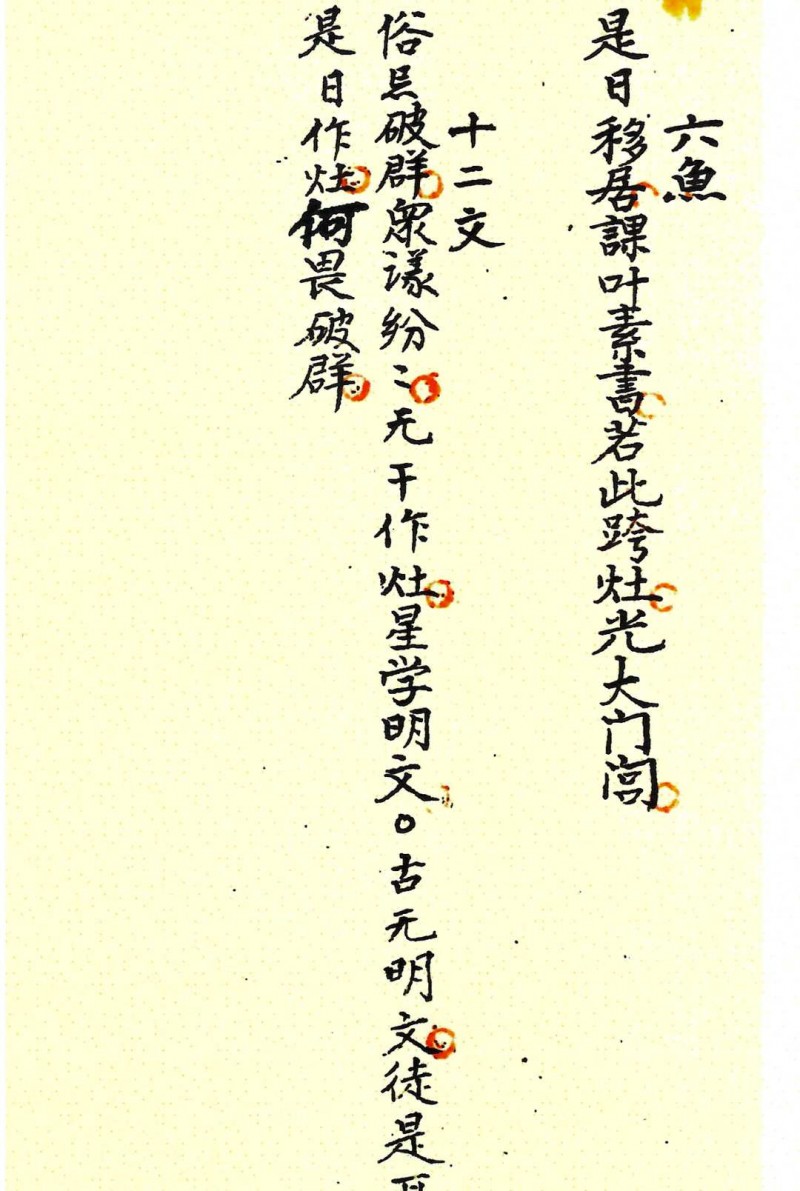 六魚
是日移居課叶素書若此跨灶光大门闾
十二文
俗忌破群衆議紛〻无干作灶星学明文○古无明文徒是
是日作灶何畏破群